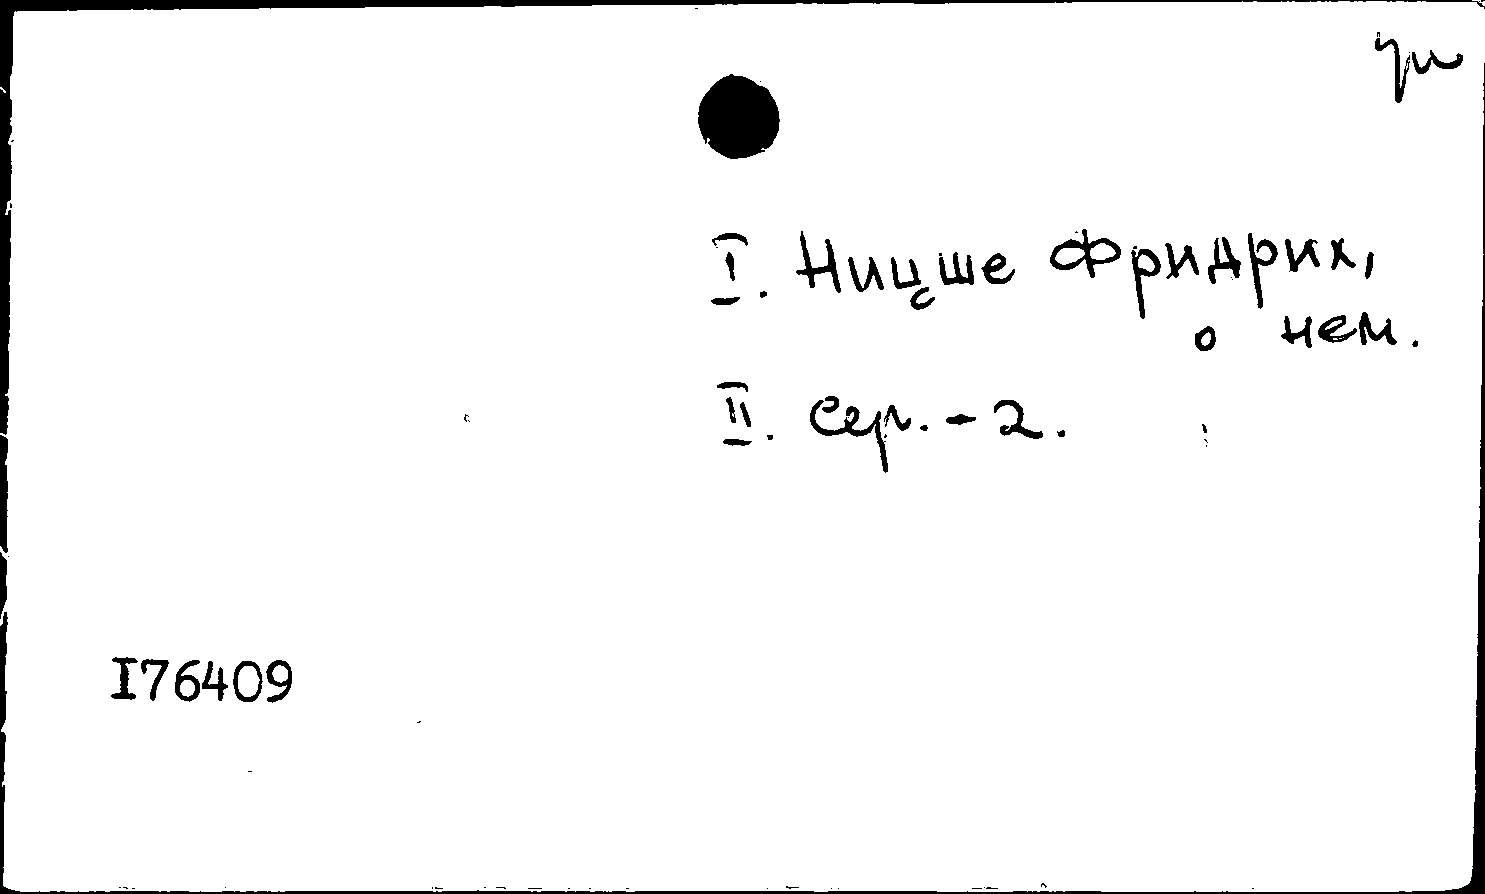 I. Ницше Фридрих,
о нем.
II. Сер. - 2.
I76409